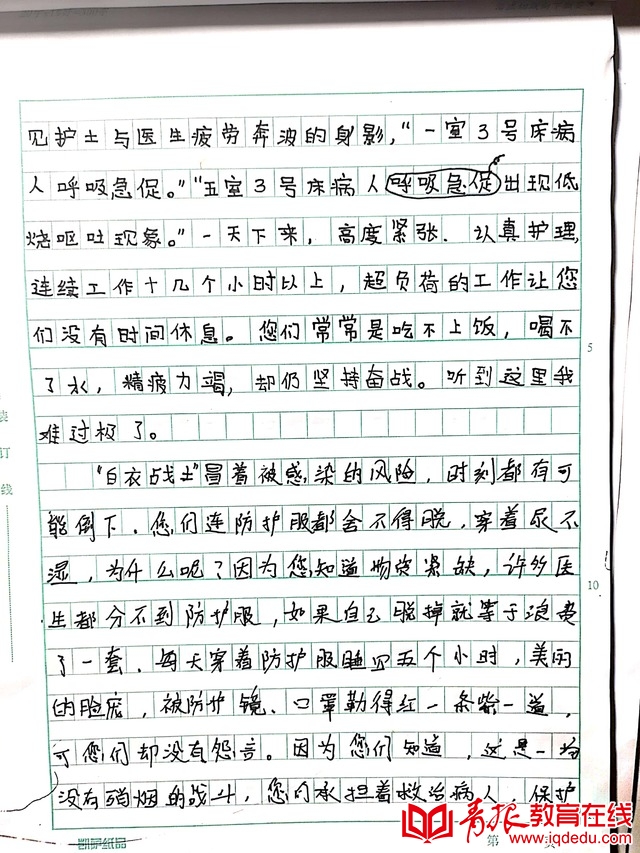 见护士与医生疲劳奔波的身影,“一室3号床病
人呼吸急促。”“五室3号床病人呼吸急促出现低
烧呕吐现象。”一天下来,高度紧张.认真护理,
连续工作十几个小时以上,超负荷的工作让您
们没有时间休息。您们常常是吃不上饭,喝不
了水,精疲力竭,却仍坚持奋战。听到这里我
难过极了。
“白衣战士”冒着被感染的风险,时刻都有可
能倒下.您们连防护服都舍不得脱,穿着尿不
湿,为什么呢?因为您知道物资紧缺,许多医
生都分不到防护服,如果自己脱掉就等于浪费
了一套.每天穿着防护服睡四五个小时,美丽
的脸庞,被防护镜、口罩勒得红一条紫一道,
可您们却没有怨言。因为您们知道,这是一场
没有硝烟的战斗,您们承担着救治病人,保护
5
10
装
订
线
凯萨纸品
第 页
青报教育在线
www.iqdedu.com